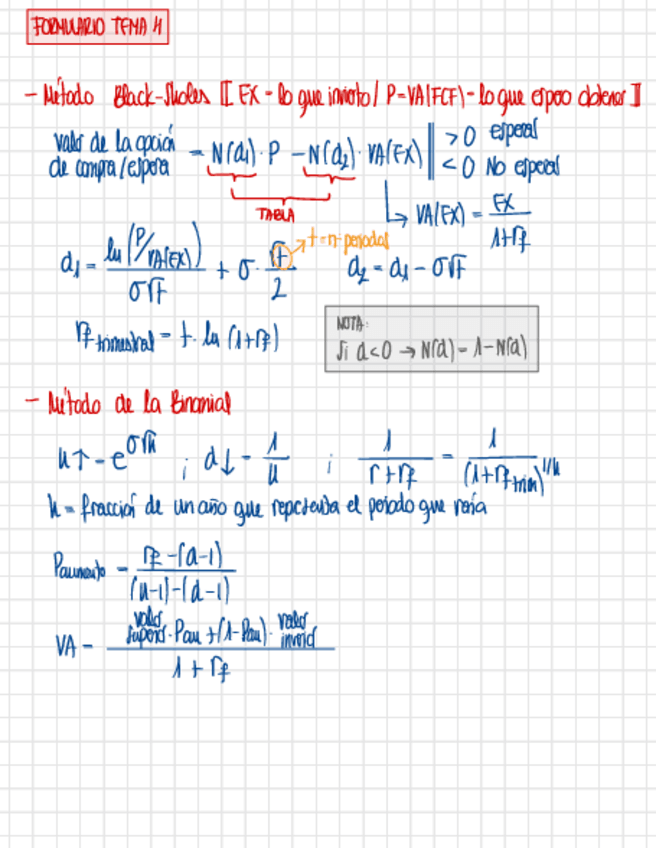 FORMULARIO TEMA 4
- Método Black-Sholes [[ EX = lo que invierto / P = VA(FCF) = lo que espero obtener ]]
valor de la opción de compra/espera = N(d₁) · P - N(d₂) · VA(EX) | > 0 esperar
< 0 No esperar
TABLA
VA(EX) = EX / 1+rf
d₁ = ln (P/VA(EX)) / σ√t + σ · √t / 2
t = nº periodos
d₂ = d₁ - σ√t
rf trimestral = t · ln (1+rf)
NOTA:
Si d<0 → N(d) = 1-N(d)
- Método de la Binomial
u↑ = e^σ√h ; d↓ = 1/u ; 1 / r+rf = 1 / (1+rf trim)^1/h
h = fracción de un año que representa el periodo que varía
Paumento = rf - (d-1) / (u-1) - (d-1)
VA = valor superior · Pau + (1-Pau) · valor inferior / 1 + rf